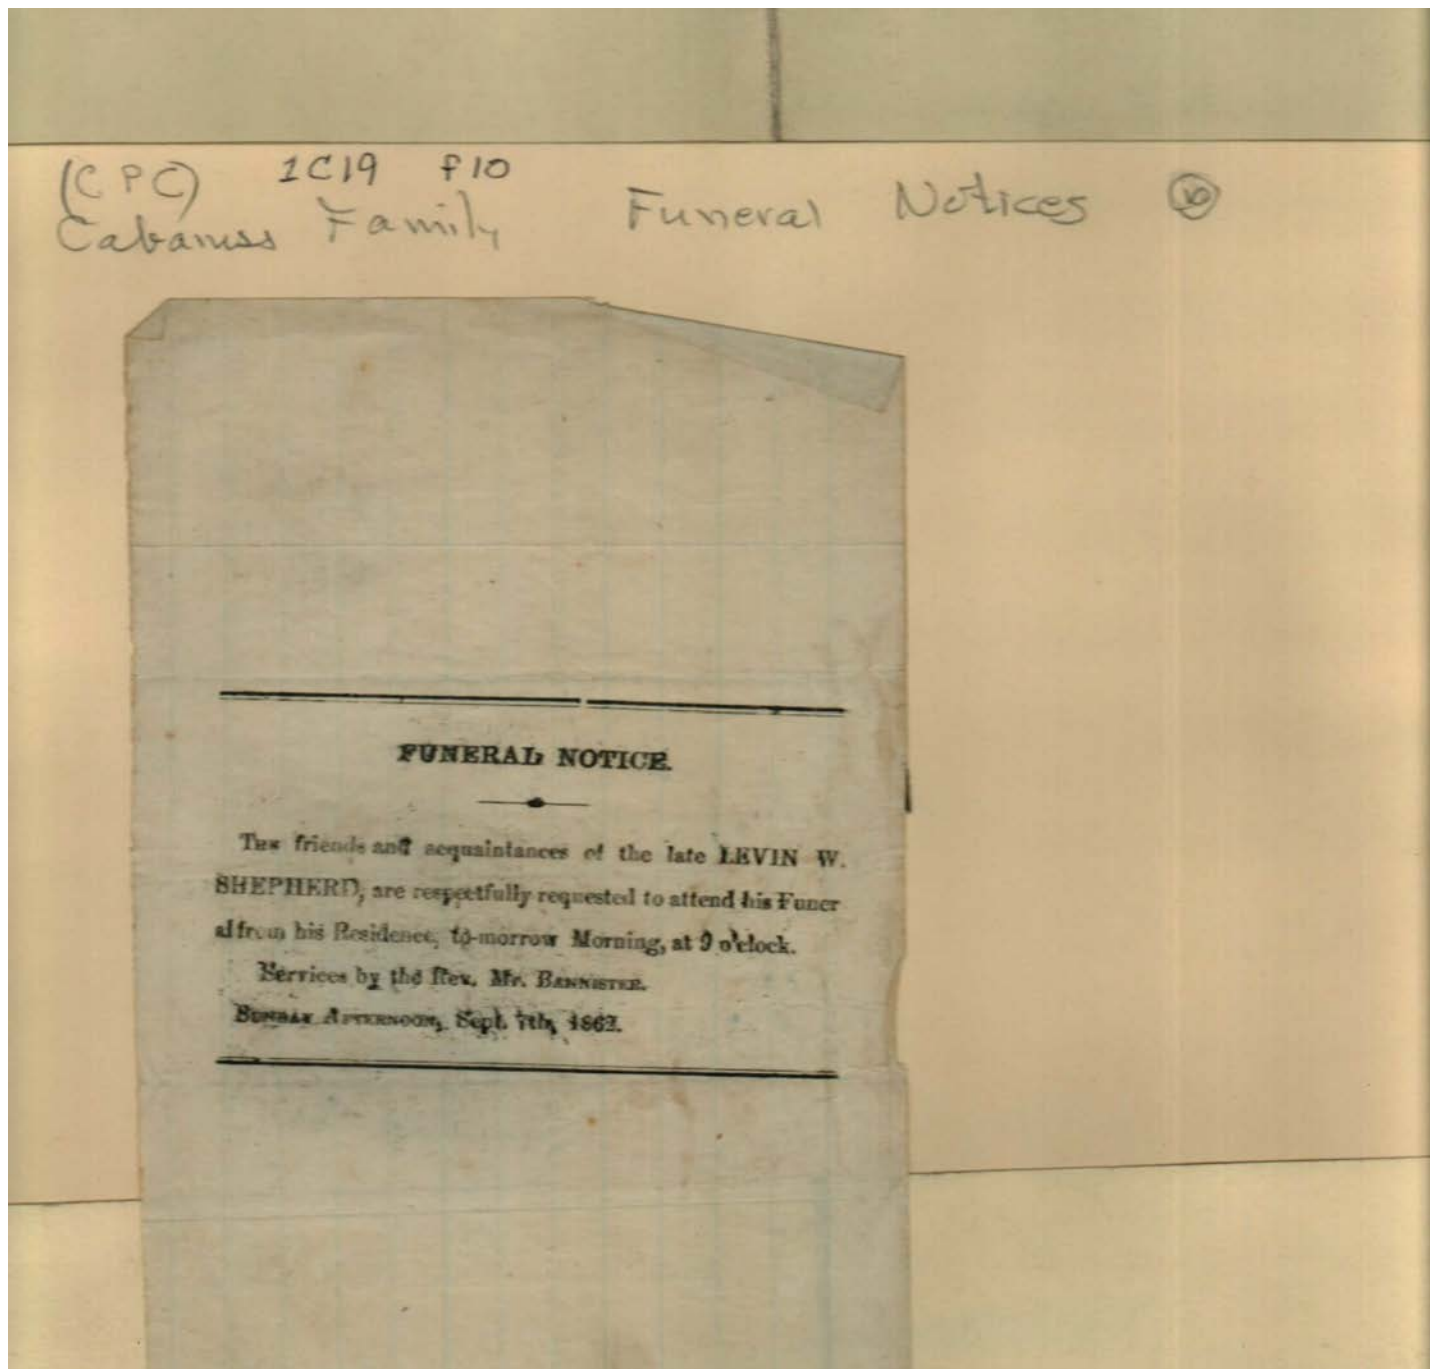 (CPC) 1C19 f10
Cabaniss Family Funeral Notices
FUNERAL NOTICE.
THE friends and acquaintances of the late LEVIN W.
SHEPHERD, are respectfully requested to attend his Funer
al from his Residence, to-morrow Morning, at 9 o'clock.
Services by the Rev. Mr. BANNISTER.
SUNDAY AFTERNOON, Sept. 7th, 1862.